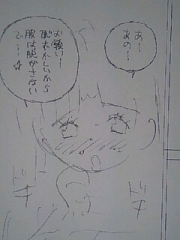 あー
あの…
お願い…
恥ずかしいから
服は脱がさない
で…
ドキ
ドキ